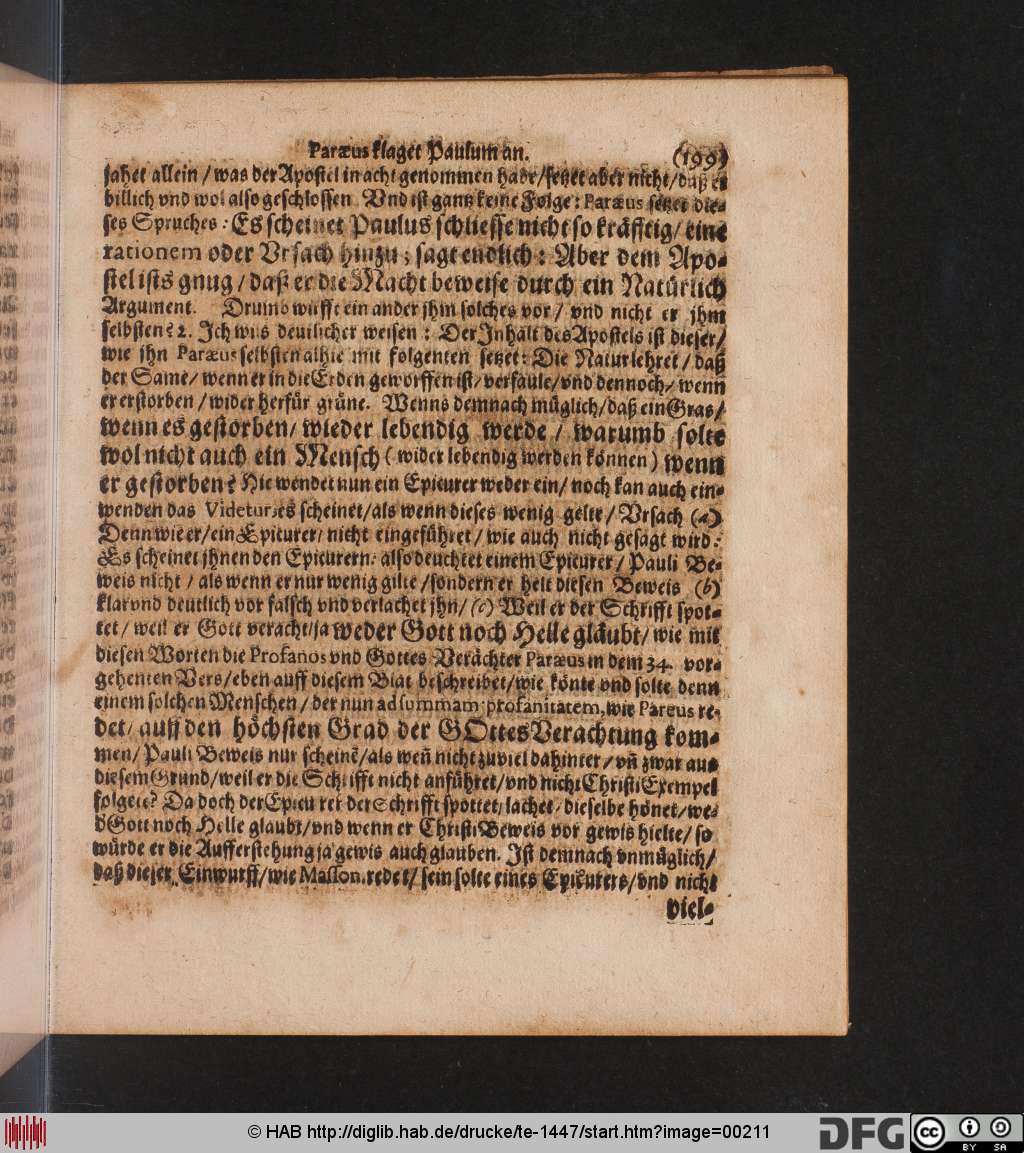 Paræus klaget Paulum an. (199)
jahet allein / was der Apostel in acht genommen habe / setzet aber nicht / daß er
billich vnd wol also geschlossen. Vnd ist gantz keine Folge: Paræus setzet die-
ses Spruches: Es scheinet Paulus schliesse nicht so kräfftig / eine
rationem oder Vrsach hinzu; sagt endlich: Aber dem Apo-
stel ists gnug / daß er die Macht beweise durch ein Natürlich
Argument. Drumb wufft ein ander jhm solches vor / vnd nicht er jhm
selbsten? 2. Ich wils deutlicher weisen: Der Inhalt des Apostels ist dieser /
wie jhn Paræus selbsten alhie mit folgenten setzet: Die Natur lehret / daß
der Same / wenn er in die Erden geworffen ist / verfaule / vnd dennoch / wenn
er erstorben / wider herfür grüne. Wenns demnach müglich / daß ein Gras /
wenn es gestorben / wieder lebendig werde / warumb solte
wol nicht auch ein Mensch (wider lebendig werden können) wenn
er gestorben? Hie wendet nun ein Epicurer weder ein / noch kan auch ein-
wenden das Videtur, es scheinet / als wenn dieses wenig gelte / Vrsach (a)
Denn wie er / ein Epicurer / nicht eingeführet / wie auch nicht gesagt wird:
Es scheinet jhnen den Epicurern: also deuchtet einem Epicurer / Pauli Be-
weis nicht / als wenn er nur wenig gilte / sondern er helt diesen Beweis (b)
klar vnd deutlich vor falsch vnd verlachet jhn / (c) Weil er der Schrifft spot-
tet / weil er Gott veracht / ja weder Gott noch Helle gläubt / wie mit
diesen Worten die Profanos vnd Gottes Verächter Paræus in dem 34. vor-
gehenten Vers / eben auff diesem Blat beschreibet / wie könte vnd solte denn
einem solchen Menschen / der nun ad summam profanitatem, wie Pareus re-
det / auff den höchsten Grad der GOttes Verachtung kom-
men / Pauli Beweis nur scheinẽ / als weñ nicht zuviel dahinter / vñ zwar aus
diesem Grund / weil er die Schrifft nicht anführet / vnd nicht Christi Exempel
folgete? Da doch der Epicurer der Schrifft spottet / lachet / dieselbe hönet / we-
d Gott noch Helle glaubt / vnd wenn er Christi Beweis vor gewis hielte / so
würde er die Aufferstehung ja gewis auch glauben. Ist demnach vnmüglich /
daß dieser Einwurff / wie Masson. redet / sein solte eines Epicurers / vnd nicht
viel-
© HAB http://diglib.hab.de/drucke/te-1447/start.htm?image=00211
DFG
cc
BY SA